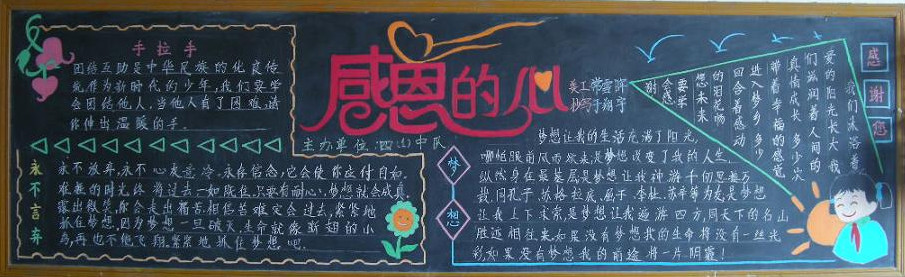 手拉手
团结互助是中华民族的优良传
统,作为新时代的少年,我们要学
会团结他人,当他人有了困难,请
你伸出温暖的手。
感恩的心
美工
抄写
主办单位:四(4)中队
永不言弃
永不放弃,永不心灰意冷。永存信念,它会使你应付自如。
难熬的时光终将过去一如既往,只要有耐心,梦想就会成真。
露出微笑,你会走出痛苦,相信苦难定会过去,紧紧地
抓住梦想,因为梦想一旦破灭,生命就像断翅的小
鸟,再也不能飞翔,紧紧地抓住梦想吧。
梦想
梦想让我的生活充满了阳光,
哪怕眼前风雨欲来,是梦想改变了我的人生。
纵然身在最基层是梦想让我神游千仞思接万
载,同孔子、苏格拉底、屈子、李杜、苏辛等为友,是梦想
让我上下求索,是梦想让我遍游四方,同天下的名山
胜迹相往来,如果没有梦想我的生命将没有一丝光
彩,如果没有梦想我的前途将一片阴霾!
我们沐浴着
爱的阳光长大我
们滋润着人间的
真情成长多少次
带着幸福的感觉
进入梦乡多少
回含着感动
的泪花畅
想未来
要学
会感
谢
感
谢
您